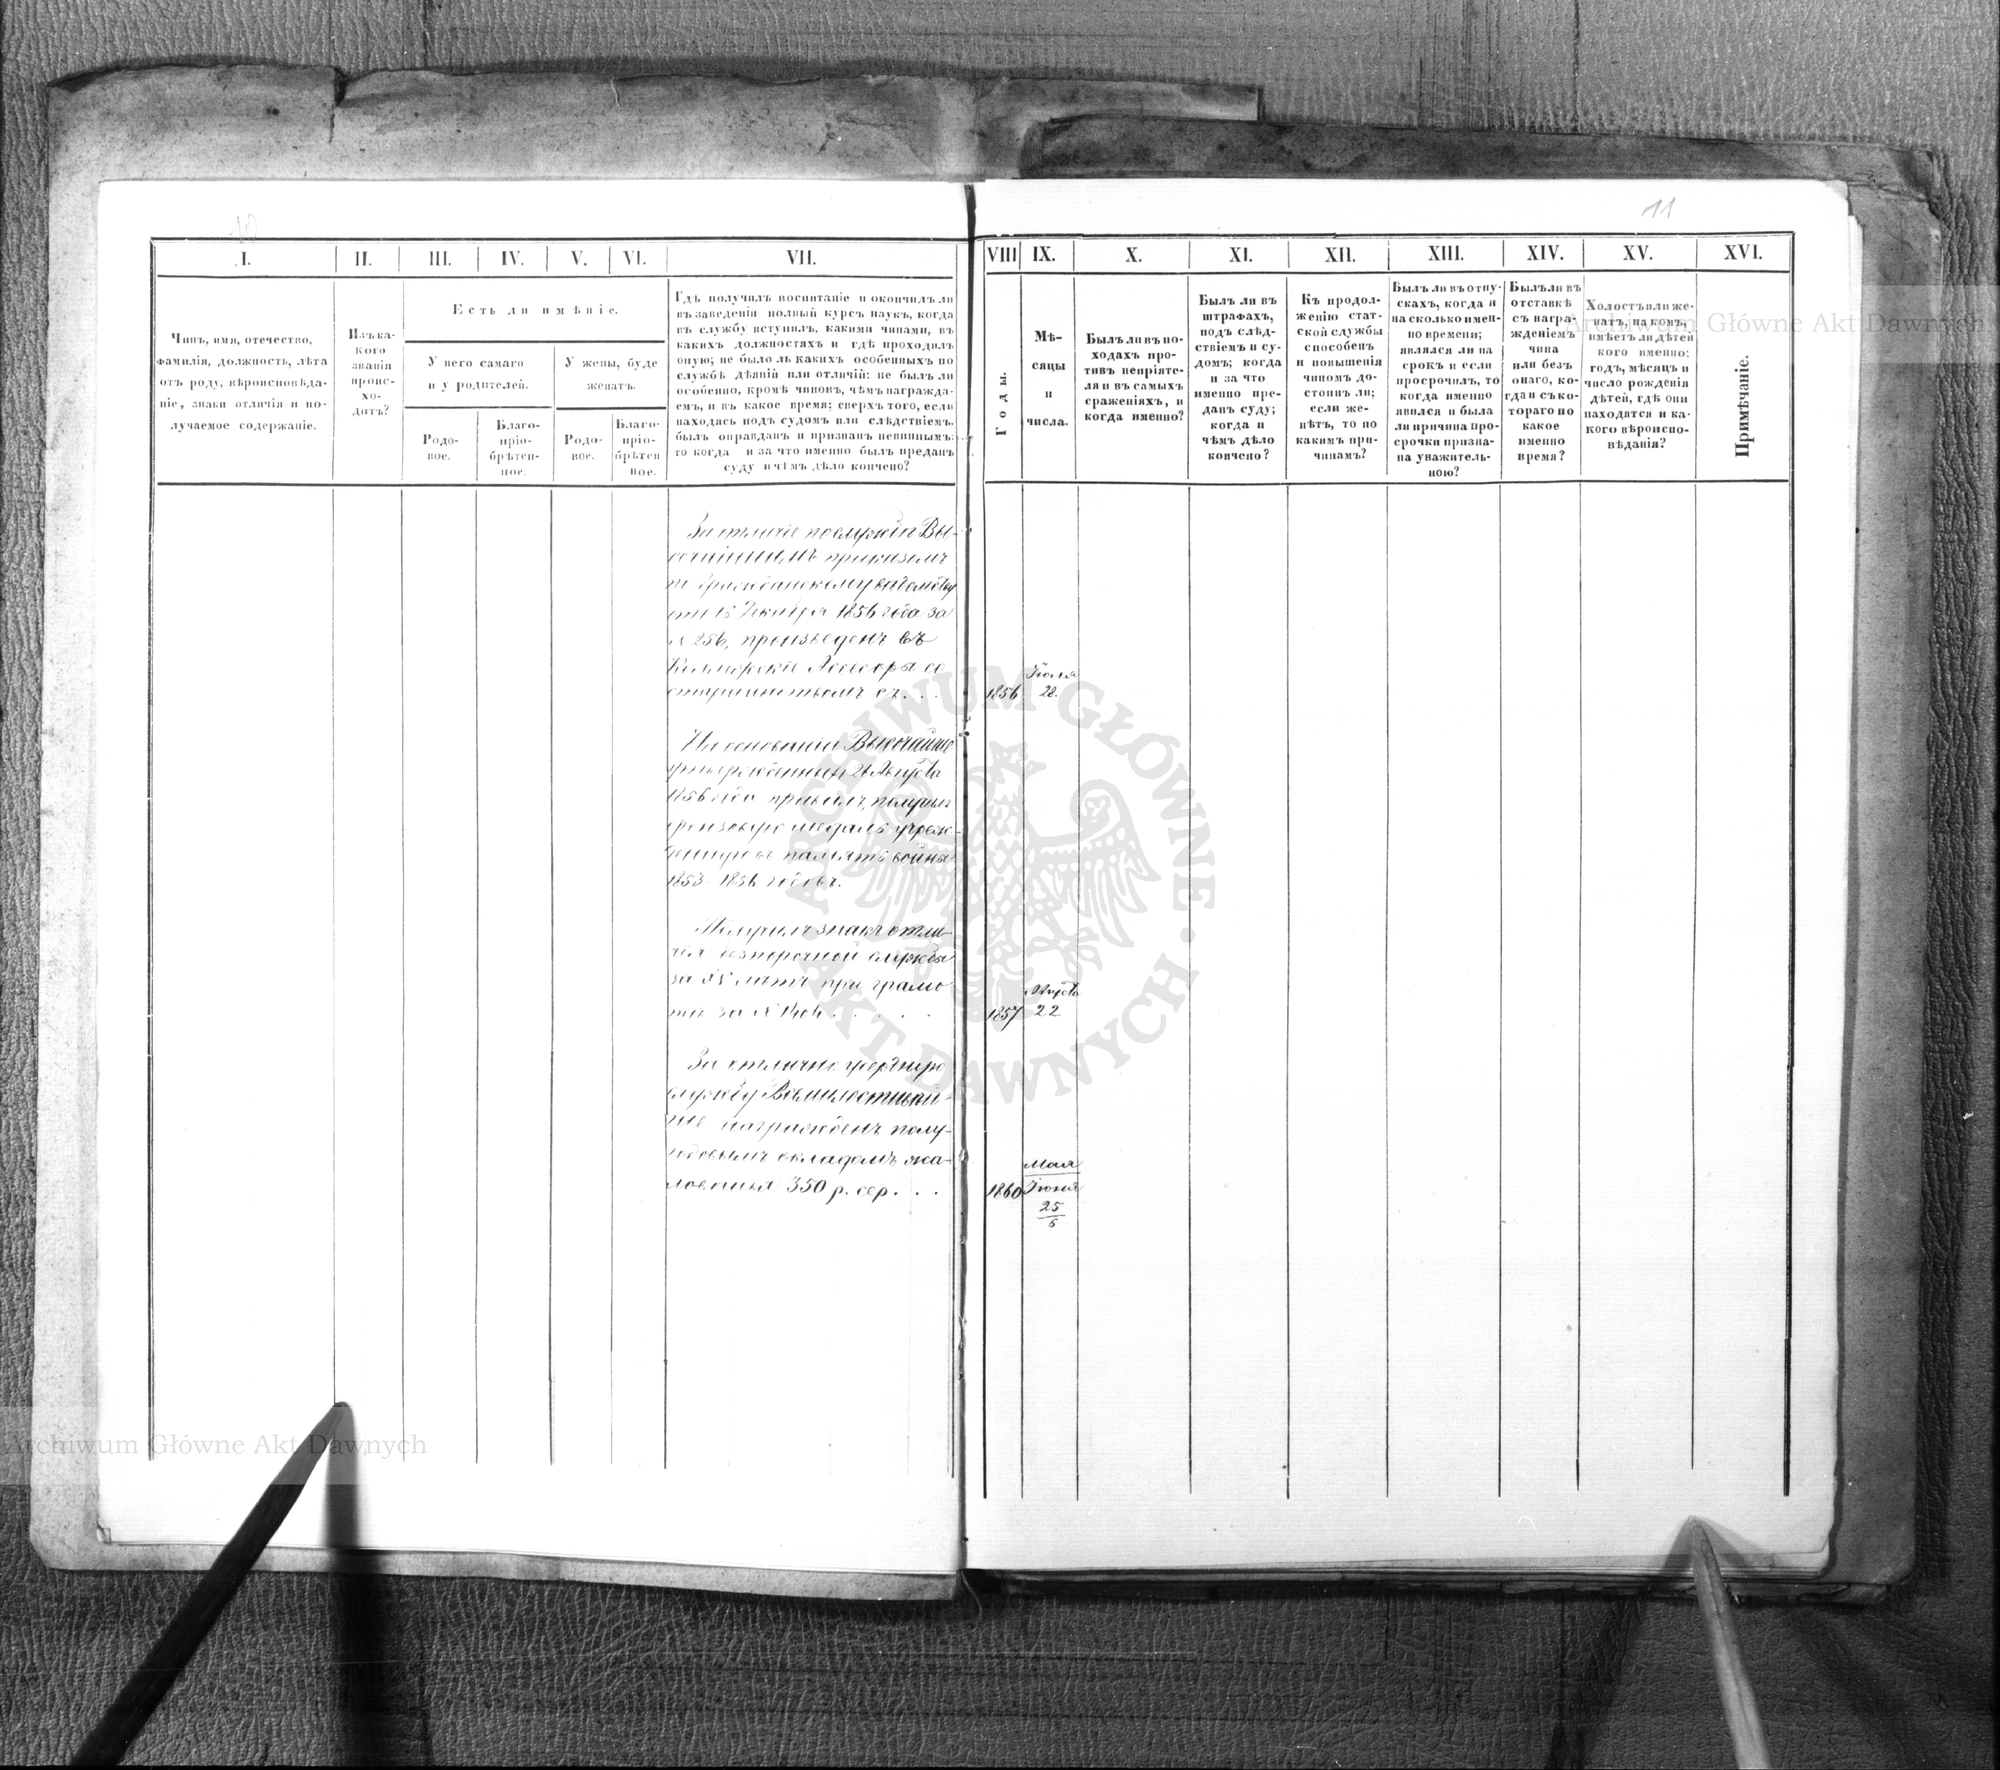 10
11
I.
II.
III.
IV.
V.
VI.
VII.
VIII
IX.
X.
XI.
XII.
XIII.
XIV.
XV.
XVI.
Чинъ, имя, отечество,
фамилія, должность, лѣта
отъ роду, вѣроисповѣда-
ніе, знаки отличія и по-
лучаемое содержаніе.
Изъ ка-
кого
званія
проис-
хо-
дитъ?
Есть ли имѣніе.
У него самаго
и у родителей.
У жены, буде
женатъ.
Родо-
вое.
Благо-
пріо-
брѣтен-
ное.
Родо-
вое.
Благо-
пріо-
брѣтен
ное.
Гдѣ получилъ воспитаніе и окончилъ ли
въ заведеніи полный курсъ наукъ, когда
въ службу вступилъ, какими чинами, въ
какихъ должностяхъ и гдѣ проходилъ
оную; не было ль какихъ особенныхъ по
службѣ дѣяній или отличій; не былъ ли
особенно, кромѣ чиновъ, чѣмъ награжда-
емъ, и въ какое время; сверхъ того, если
находясь подъ судомъ или слѣдствіемъ,
былъ оправданъ и признанъ невиннымъ:
то когда и за что именно былъ преданъ
суду и чѣмъ дѣло кончено?
Годы.
Мѣ-
сяцы
и
числа.
Былъ ли въ по-
ходахъ про-
тивъ непріяте-
ля и въ самыхъ
сраженіяхъ, и
когда именно?
Былъ ли въ
штрафахъ,
подъ слѣд-
ствіемъ и су-
домъ; когда
и за что
именно пре-
данъ суду;
когда и
чѣмъ дѣло
кончено?
Къ продол-
женію стат-
ской службы
способенъ
и повышенія
чиномъ до-
стоинъ ли;
если же-
нѣтъ, то по
какимъ при-
чинамъ?
Былъ ли въ отпу-
скахъ, когда и
на сколько имен-
но времени;
являлся ли на
срокъ и если
просрочилъ, то
когда именно
явился и была
ли причина про-
срочки призна-
на уважитель-
ною?
Былъ ли въ
отставкѣ
съ награ-
жденіемъ
чина
или безъ
онаго, ко-
гда и съ ко-
тораго по
какое
именно
время?
Холостъ или же-
натъ, на комъ,
имѣетъ ли дѣтей
кого именно;
годъ, мѣсяцъ и
число рожденія
дѣтей, гдѣ они
находятся и ка-
кого вѣроиспо-
вѣданія?
Примѣчаніе.
За отличіе по службѣ Вы-
сочайшимъ приказомъ
по Гражданскому вѣдомству
отъ 15 Декабря 1856 года за
№ 256, произведенъ въ
Коллежскіе Асессоры со
старшинствомъ съ . . .
1856
Іюля
28.
На основаніи Высочайше
утвержденныхъ 26 Августа
1856 года правилъ, получилъ
бронзовую медаль учреж-
денную въ память войны
1853-1856 годовъ.
Получилъ знакъ отли-
чія безпорочной службы
за XV лѣтъ при грамо-
тѣ за № 1404 . . . .
1857
Августа
22
За отлично усердную
службу Всемилостивѣй-
ше награжденъ полу-
годовымъ окладомъ жа-
лованья 350 р. сер. . .
1860
Мая
Іюня
25
6
Archiwum Główne Akt Dawnych
ARCHIWUM GŁÓWNE · AKT DAWNYCH ·
Archiwum Główne Akt Dawnych